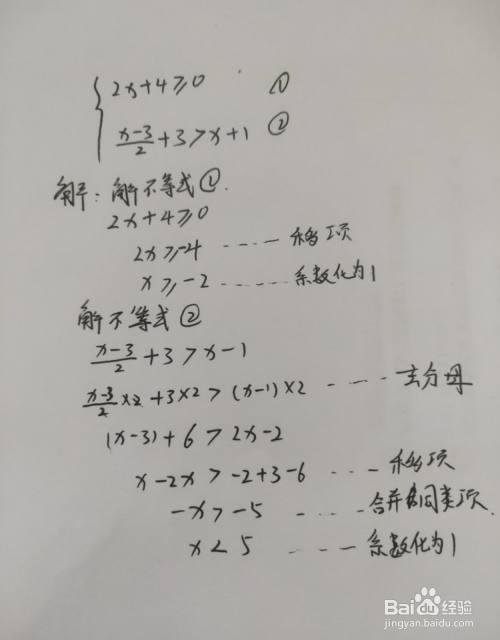 2x+4≥0 ①
x-3/2+3>x+1 ②
解：解不等式①.
2x+4≥0
2x≥-4 ---- 移项
x≥-2 ---- 系数化为1
解不等式②
x-3/2+3>x-1
x-3/2×2+3×2>(x-1)×2 ---- 去分母
(x-3)+6>2x-2
x-2x>-2+3-6 ---- 移项
-x>-5 ---- 合并同类项.
x<5 ---- 系数化为1
Baidu经验
jingyan.baidu.com